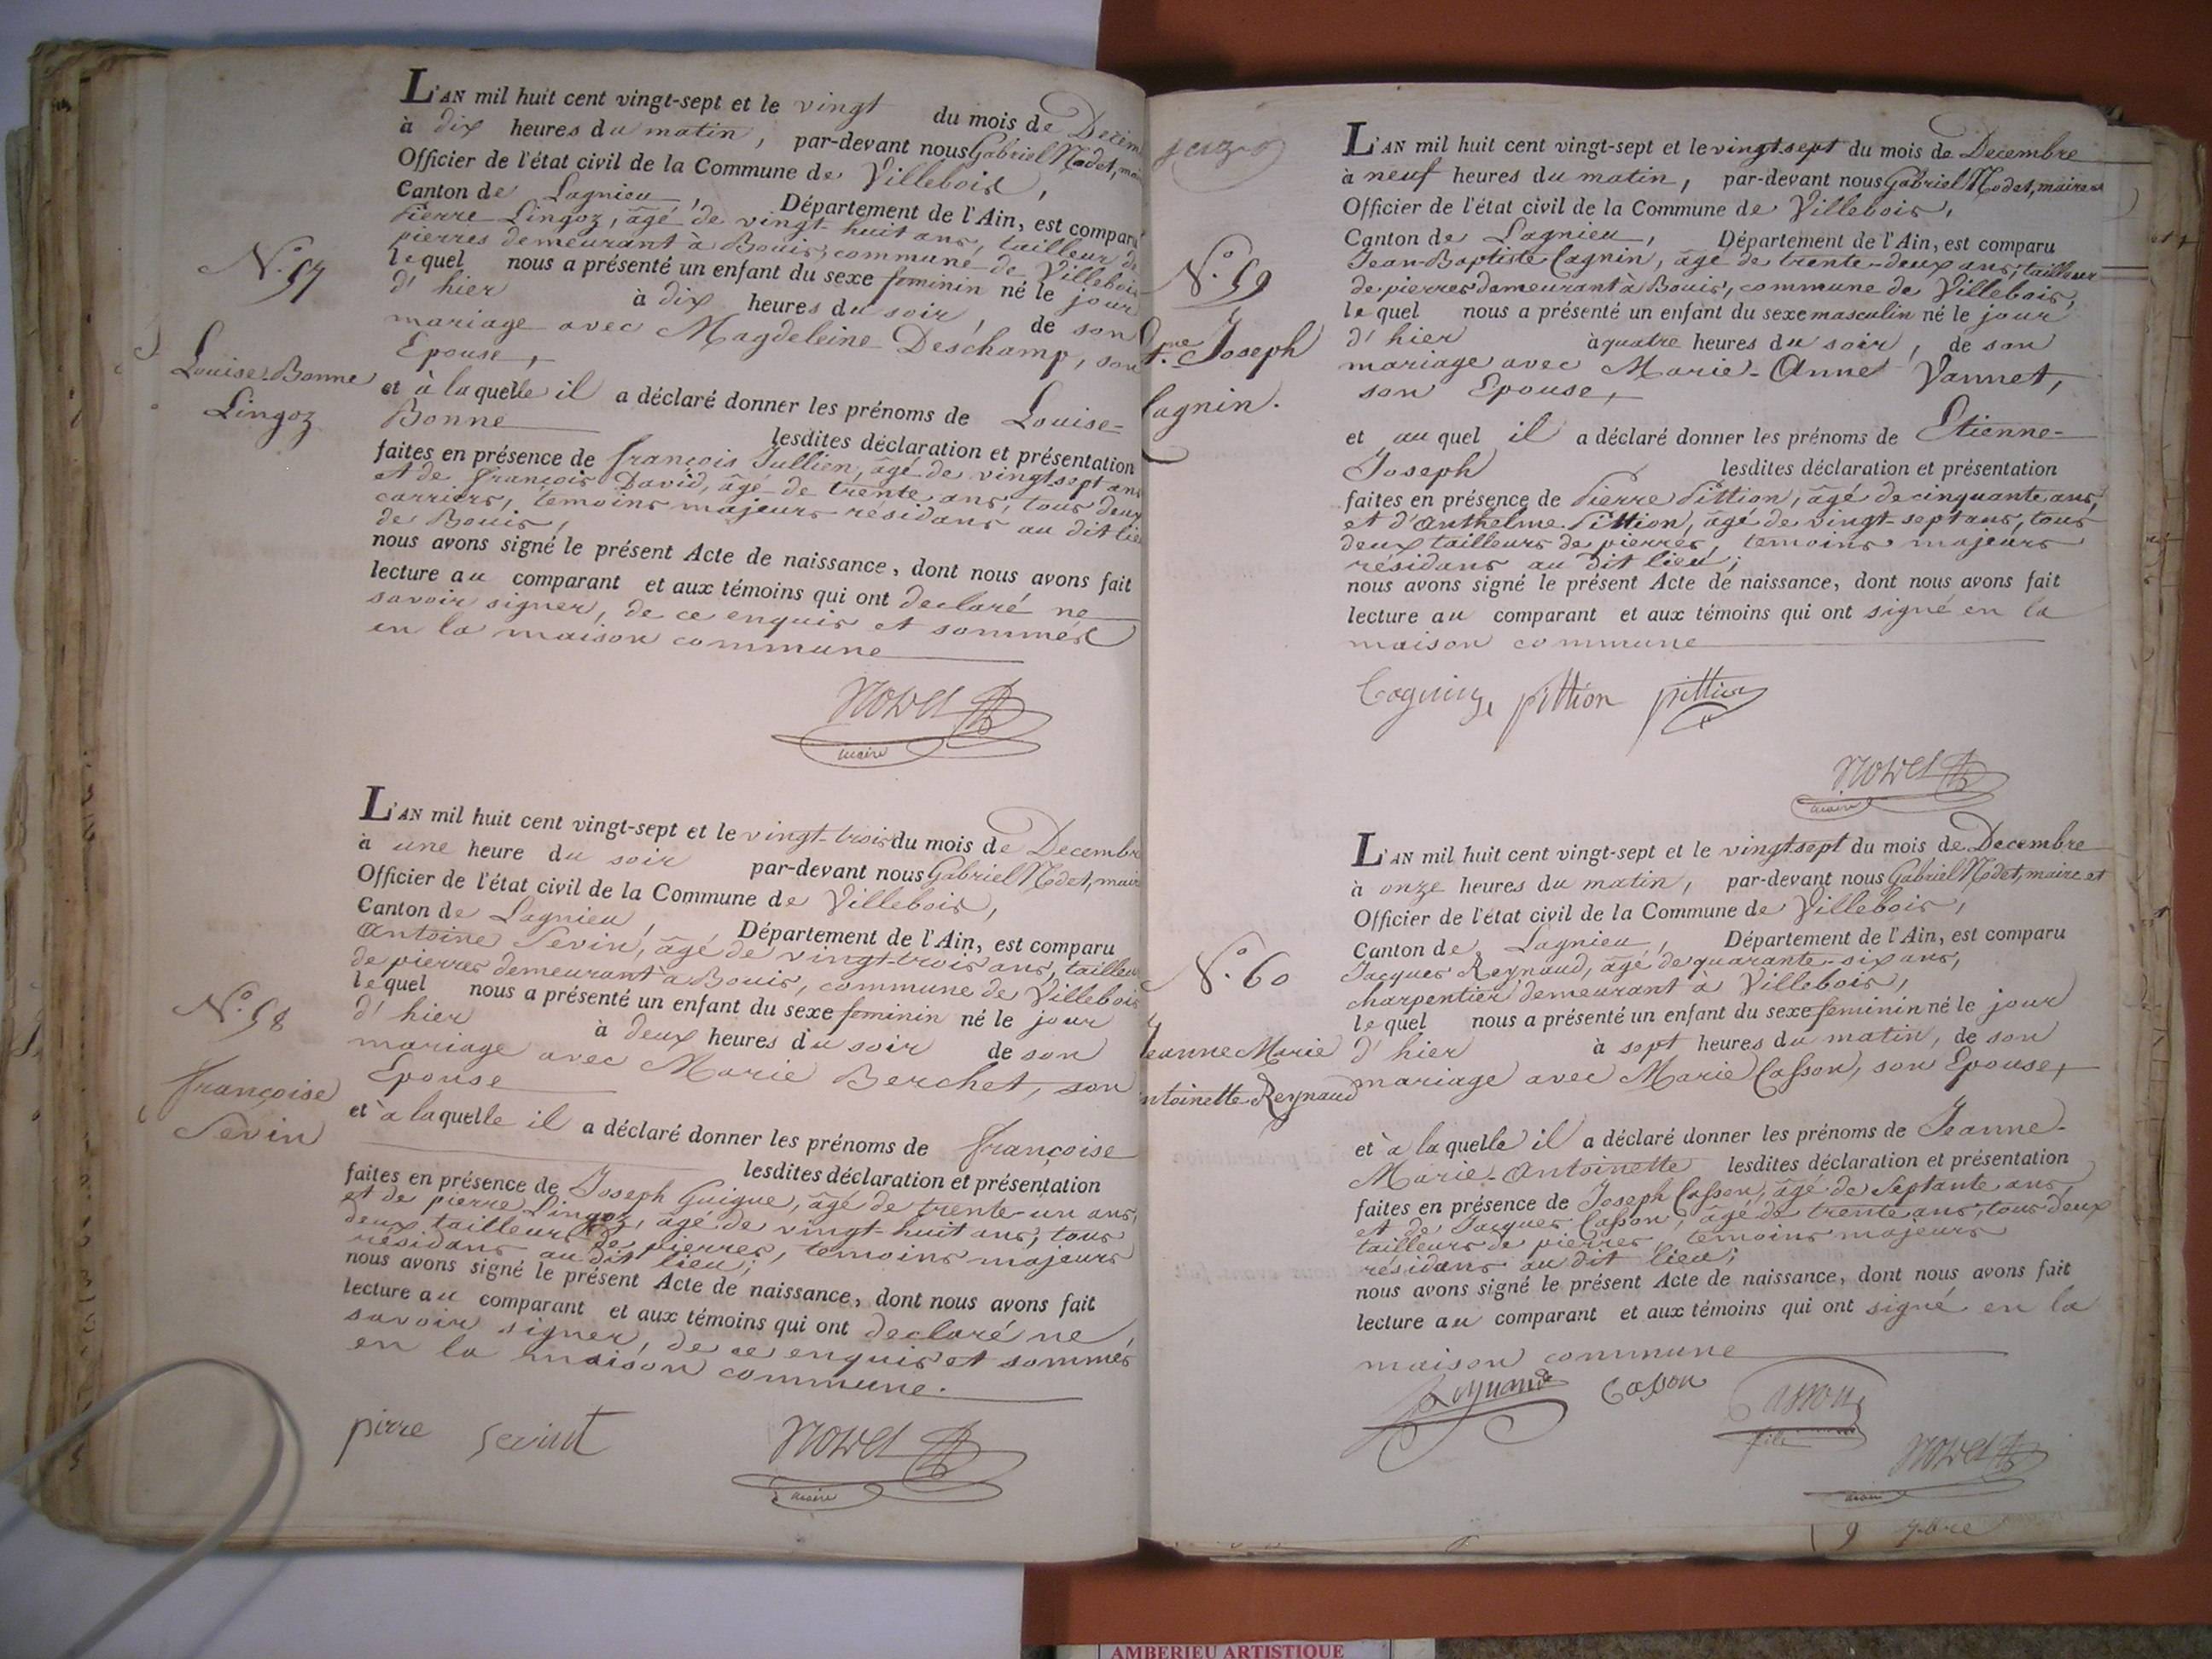 L'AN mil huit cent vingt-sept et le vingt du mois de Decem
à dix heures du matin, par-devant nous Gabriel Nodet, mai
Officier de l'état civil de la Commune de Villebois,
Canton de Lagnieu, Département de l'Ain, est comparu
Pierre Lingoz, âgé de vingt-huit ans, tailleur de
pierres demeurant à Bouis, commune de Villebois
lequel nous a présenté un enfant du sexe feminin né le jour
d'hier à dix heures du soir, de son
mariage avec Magdeleine Deschamp, son
Epouse,
et à laquelle il a déclaré donner les prénoms de Louise-
Bonne lesdites déclaration et présentation
faites en présence de françois Jullien, âgé de vingt sept ans
et de françois David, âgé de trente ans, tous deux
carriers, temoins majeurs résidans au dit lieu
de Bouis,
nous avons signé le présent Acte de naissance, dont nous avons fait
lecture au comparant et aux témoins qui ont declaré ne
savoir signer, de ce enquis et sommés
en la maison commune
Nodet
maire
N.º 57
Louise-Bonne
Lingoz
L'AN mil huit cent vingt-sept et le vingt-trois du mois de Decembre
à une heure du soir par-devant nous Gabriel Nodet, maire
Officier de l'état civil de la Commune de Villebois,
Canton de Lagnieu, Département de l'Ain, est comparu
Antoine Sevin, âgé de vingt-trois ans, tailleur
de pierres demeurant à Bouis, commune de Villebois
lequel nous a présenté un enfant du sexe feminin né le jour
d'hier à deux heures du soir de son
mariage avec Marie Berchet, son
Epouse
et à laquelle il a déclaré donner les prénoms de françoise
lesdites déclaration et présentation
faites en présence de Joseph Guigue, âgé de trente-un ans,
et de pierre Lingoz, âgé de vingt-huit ans, tous
deux tailleurs de pierres, temoins majeurs
résidans au dit lieu;
nous avons signé le présent Acte de naissance, dont nous avons fait
lecture au comparant et aux témoins qui ont declaré ne
savoir signer, de ce enquis et sommés
en la maison commune.
pirre Nodet
maire
N.º 58
françoise
Sevin
L'AN mil huit cent vingt-sept et le vingt sept du mois de Decembre
à neuf heures du matin, par-devant nous Gabriel Nodet, maire et
Officier de l'état civil de la Commune de Villebois,
Canton de Lagnieu, Département de l'Ain, est comparu
Jean-Baptiste Cagnin, âgé de trente-deux ans, tailleur
de pierres demeurant à Bouis, commune de Villebois,
lequel nous a présenté un enfant du sexe masculin né le jour
d'hier à quatre heures du soir, de son
mariage avec Marie-Anne Vannet,
son Epouse,
et auquel il a déclaré donner les prénoms de Etienne-
Joseph lesdites déclaration et présentation
faites en présence de Pierre Pittion, âgé de cinquante ans,
et d'Anthelme Pittion, âgé de vingt-sept ans, tous
deux tailleurs de pierres, temoins majeurs
résidans au dit lieu;
nous avons signé le présent Acte de naissance, dont nous avons fait
lecture au comparant et aux témoins qui ont signé en la
maison commune
Cagnin pittion pittion
Nodet
maire
N.º 59
t.ne Joseph
Cagnin.
L'AN mil huit cent vingt-sept et le vingt sept du mois de Decembre
à onze heures du matin, par-devant nous Gabriel Nodet, maire et
Officier de l'état civil de la Commune de Villebois,
Canton de Lagnieu, Département de l'Ain, est comparu
Jacques Reynaud, âgé de quarante-six ans,
charpentier demeurant à Villebois,
lequel nous a présenté un enfant du sexe feminin né le jour
d'hier à sept heures du matin, de son
mariage avec Marie Casson, son Epouse,
et à laquelle il a déclaré donner les prénoms de Jeanne-
Marie-Antoinette lesdites déclaration et présentation
faites en présence de Joseph Casson, âgé de septante ans,
et de Jacques Casson, âgé de trente ans, tous deux
tailleurs de pierres, temoins majeurs
résidans au dit lieu;
nous avons signé le présent Acte de naissance, dont nous avons fait
lecture au comparant et aux témoins qui ont signé en la
maison commune
Reynaud Casson Casson
fils
Nodet
maire
N.º 60
Jeanne Marie
ntoinette Reynaud
AMBERIEU ARTISTIQUE